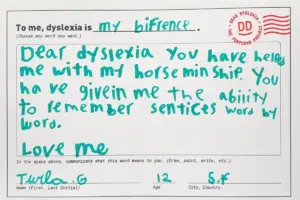 To me, dyslexia is my bifrence.
(Choose any word you want.)
DEAR DYSLEXIA
DD
THE POSTCARD PROJECT
Dear dyslexia You have helped
me with my horseminship. You
have givein me the abiiity
to remember sentices word by
word.
Love me
In the space above, communicate what this word means to you: (Draw, paint, write, etc.)
Turla.G 12 S.F
Name (First, Last Initial) Age City, Country